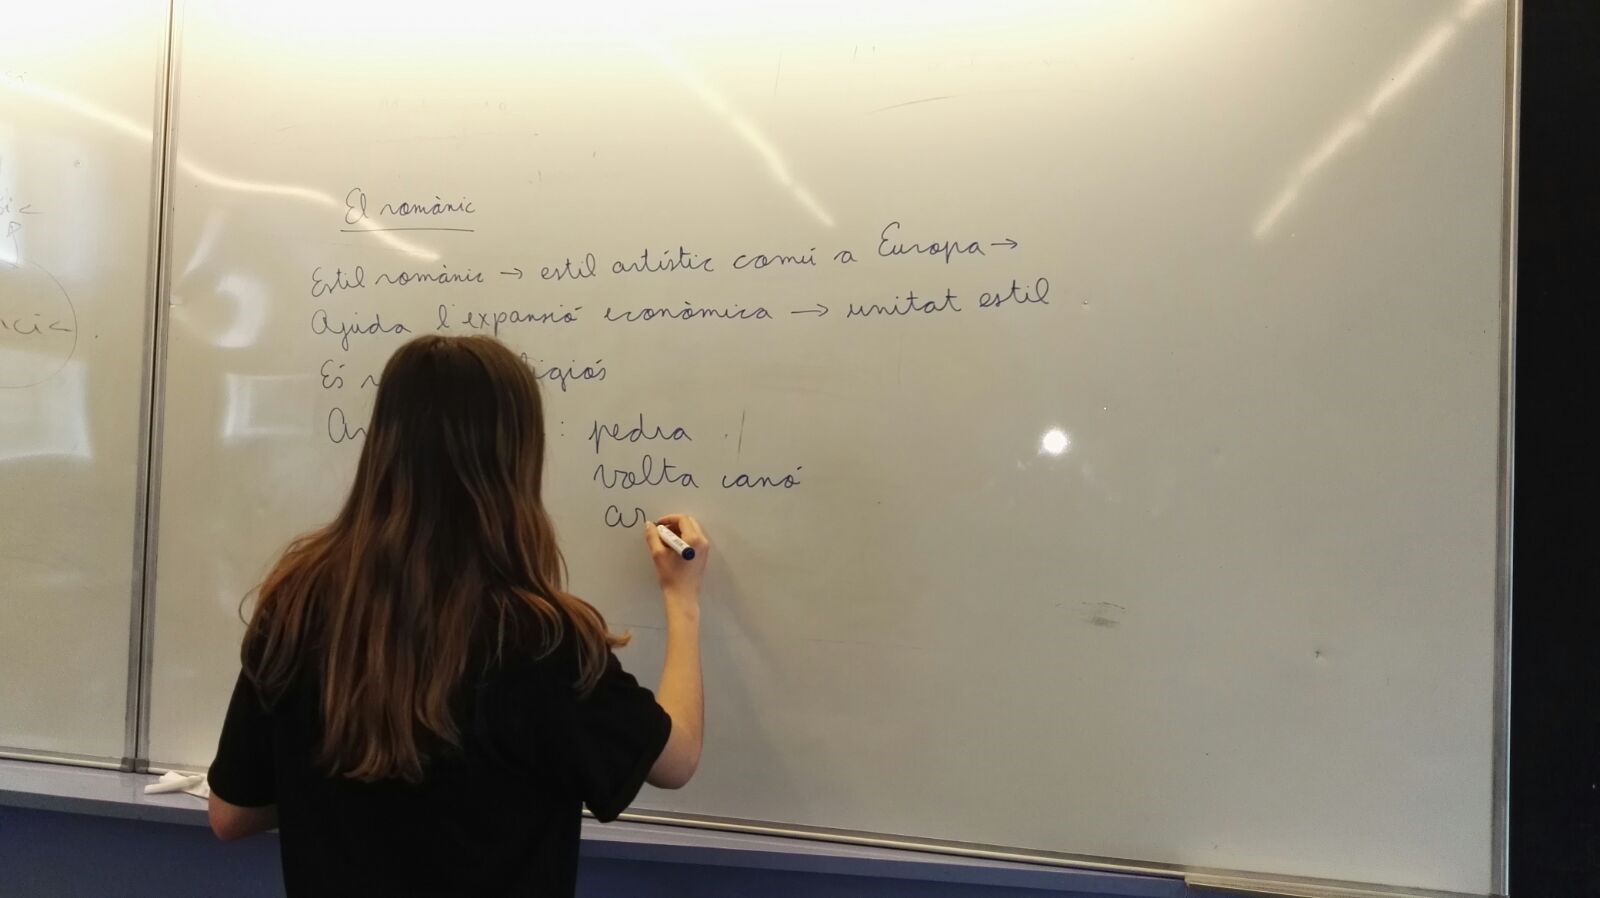 El romànic
Estil romànic → estil artístic comú a Europa →
Ajuda l'expansió econòmica → unitat estil
És
: pedra
volta canó
ar